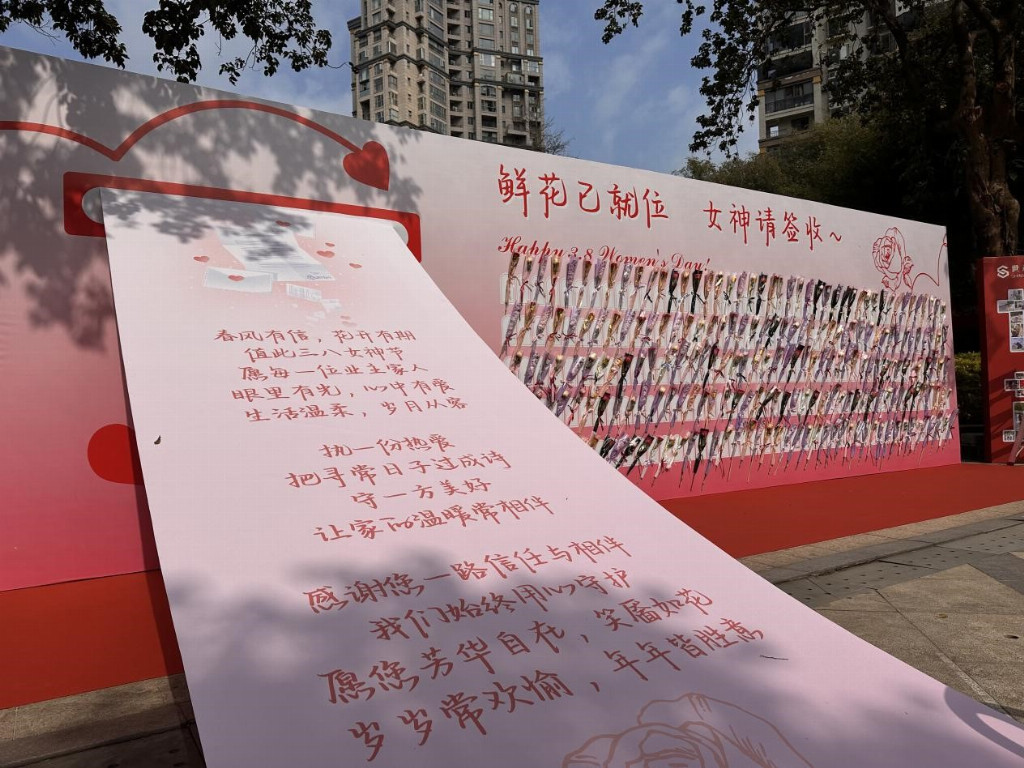 鲜花已就位 女神请签收~
Happy 3.8 Women's Day!
春风有信，花开有期
值此三八女神节
愿每一位业主家人
眼里有光，心中有爱
生活温柔，岁月从容
执一份热爱
把寻常日子过成诗
守一方美好
让家的温暖常相伴
感谢您一路信任与相伴
我们始终用心守护
愿您芳华自在，笑靥如花
岁岁常欢愉，年年皆胜意